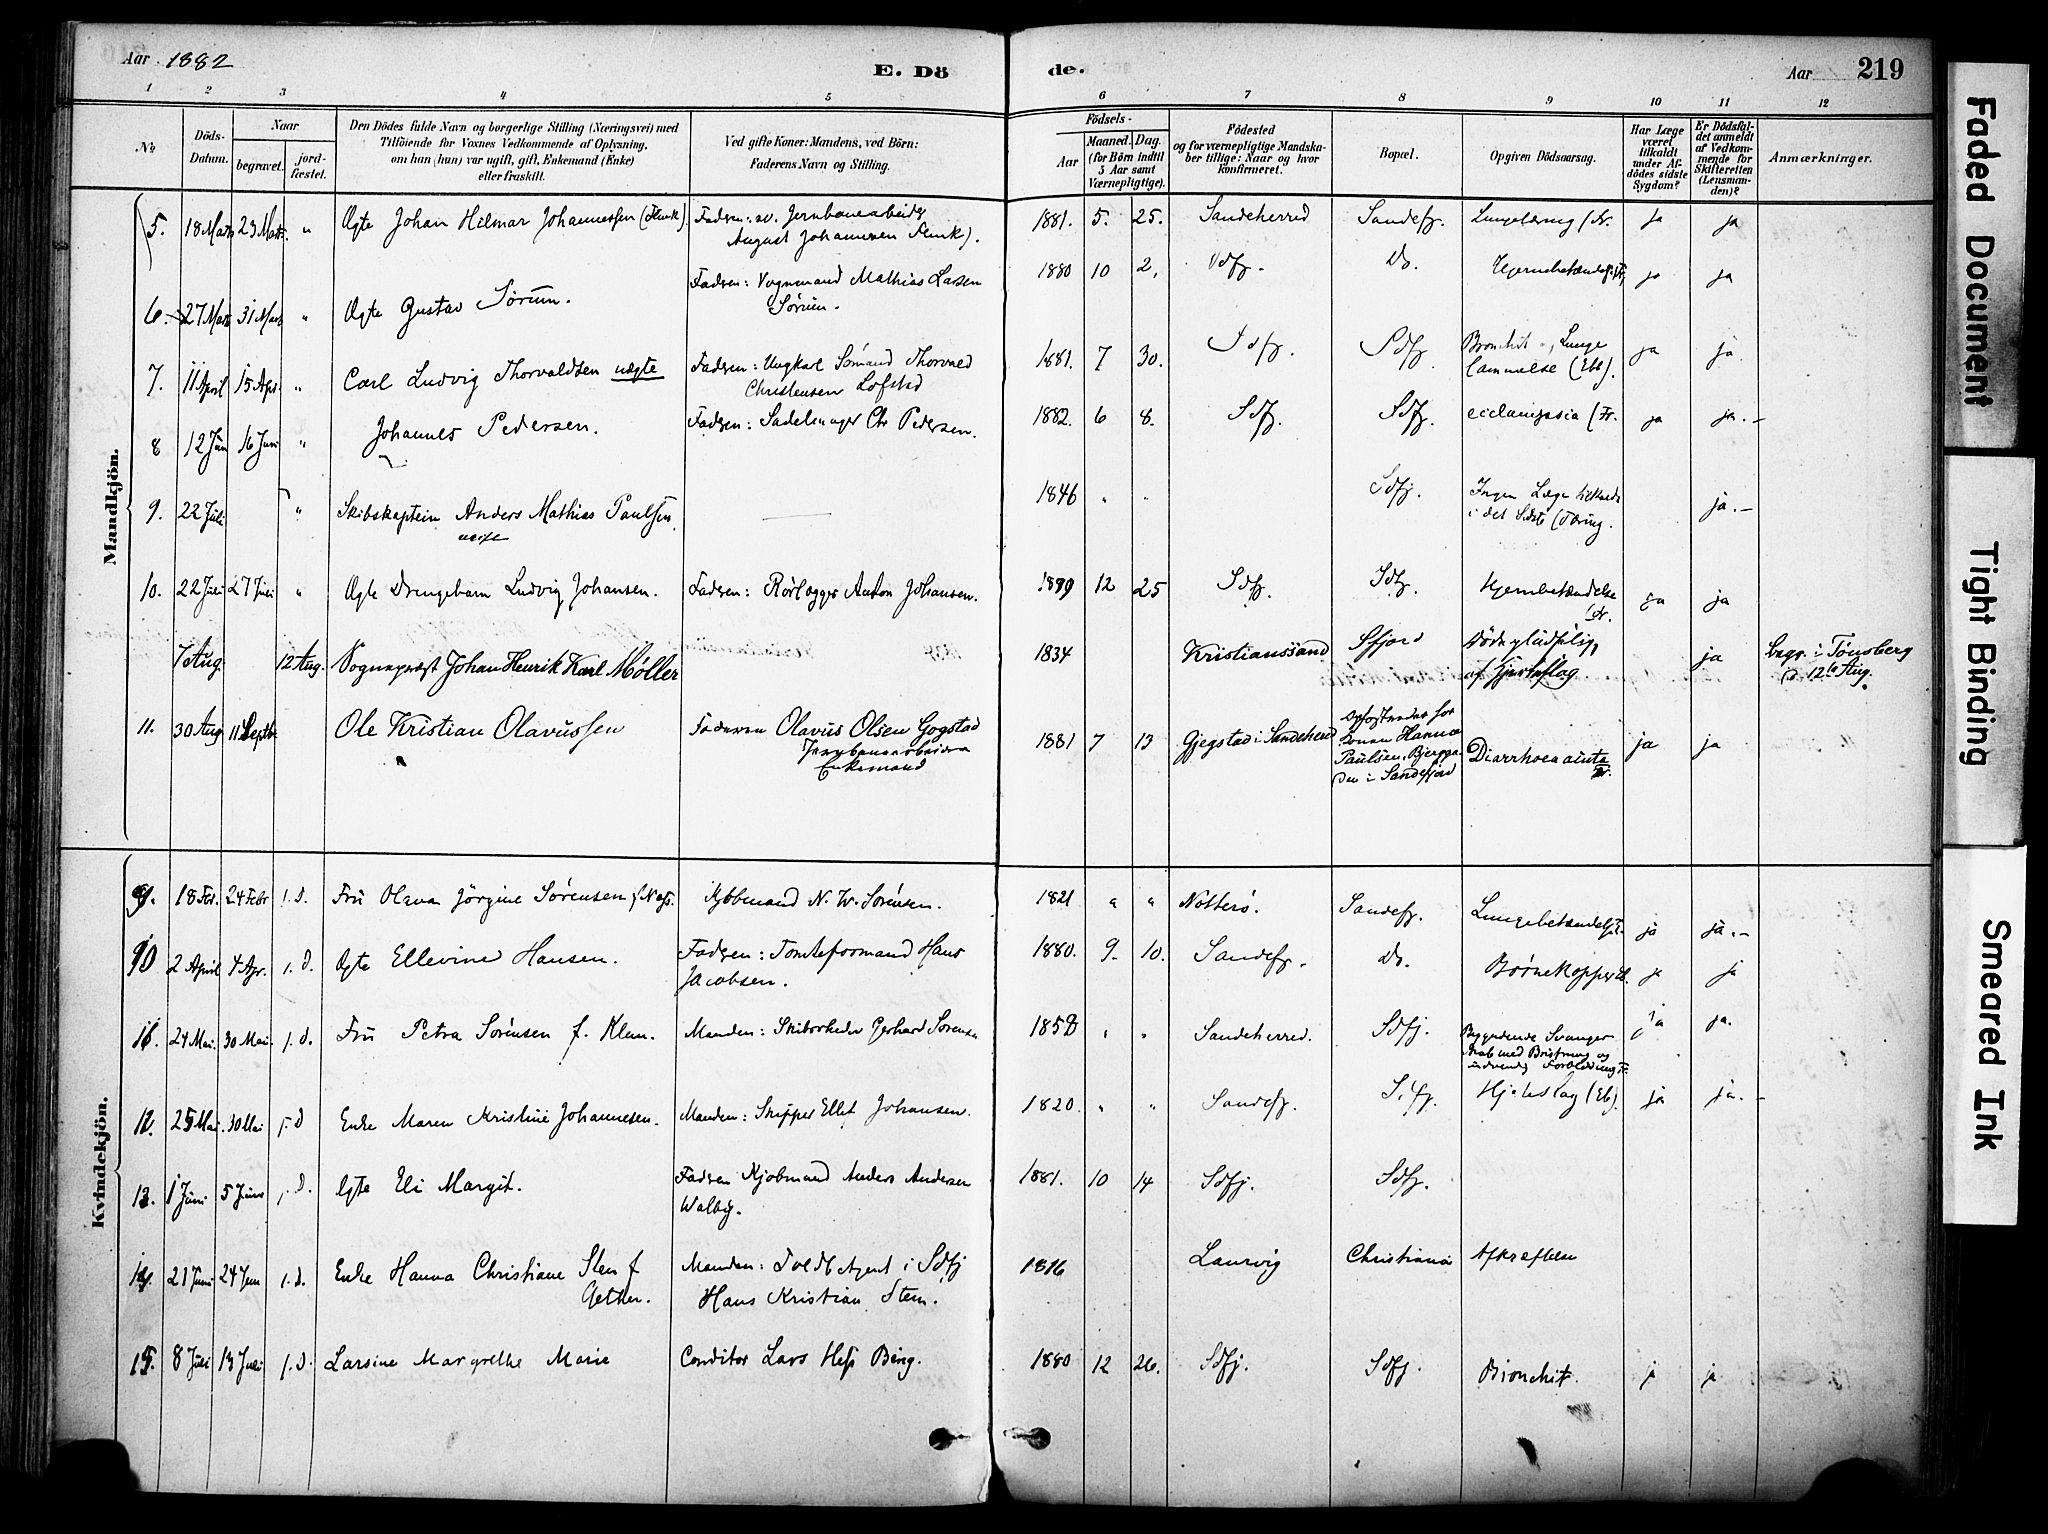 Aar 1882
E. Dö
de.
Aar
219
1 2 3 4 5 6 7 8 9 10 11 12
No
Döds-
Datum.
Naar
begravet.
jord-
fæstet.
Den Dödes fulde Navn og borgerlige Stilling (Næringsvei) med
Tilföiende for Voxnes Vedkommende af Oplysning,
om han (hun) var ugift, gift, Enkemand (Enke)
eller fraskilt.
Ved gifte Koner: Mandens, ved Börn:
Faderens Navn og Stilling.
Födsels-
Aar
Maaned. Dag.
(for Börn indtil
5 Aar samt
Værnepligtige).
Födested
og for værnepligtige Mandska-
ber tillige: Naar og hvor
konfirmeret.
Bopæl.
Opgiven Dödsaarsag.
Har Læge
været
tilkaldt
under Af-
dödes sidste
Sygdom?
Er Dödsfal-
det anmeldt
af Vedkom-
mende for
Skifteretten
(Lensman-
den)?
Anmærkninger.
Mandkjön.
5. 18 Marts 23 Marts. " Ægte Johan Hilmar Johannessen Fadren: Jernbanearbeider 1881. 5. 25. Sandeherred Sandefj. ja ja
August Johannesen
6. 27 Mars 31 Mars " Ægte Gustav Sørum. Fadren: Vognmand Mathias Larsen 1880 10 2. Sdfj. Do. ja ja
Sørum.
7. 11 April 15 Apr. " Carl Ludvig Thorvaldsen uægte Fadren: Ungkarl Sömand Thorvald 1881. 7 30. Sdfj. Sdfj. Bronchit , Lunge ja ja.
Christensen Lofstad lammelse
8 12 Jun 16 Juni " Johannes Pedersen. Fadren: Sadelmager Chr Pedersen. 1882. 6 8. Sdfj. Sdfj. ja ja.-
9. 22 Juli " Skibskaptein Anders Mathias Paulsen 1846 " " Sdfj. Ingen Læge ja.-
i det Sidste (Tæring.
10. 22 Juli 27 Juli " Ægte Drengebarn Ludvig Johansen. Fadren: Rørlægger Anton Johansen. 12 25 Sdfj. Sdfj. Hjernbetændelse ja ja
7 Aug. 12 Aug. Sognepræst Johan Henrik Karl Møller 1834 Kristianssand Sfjord ja begr. i Tønsberg
af Hjerteslag 12te Aug.
11. 30 Aug 11 Septbr. Ole Kristian Olavussen Faderen Olavus Olsen Gogstad 1881 7 13 Gjegstad i Sandeherred Opfostredes hos Diarrhoea acuta ja ja
Jernbanearbeider Konen Hanna
Enkemand Paulsen, Bjergga-
den i Sandefjord
Kvindekjön.
9. 18 Feb. 24 Febr j. D. Fru Olava Jörgine Sørensen Kjøbmand N. W. Sørensen. 1821 " " Notterö. Sandefj. Lungebetændelse ja ja.-
10 2 April 4 Apr. j. D. Ægte Ellevine Hansen. Fadren: Tomteformand Hans 1880. 9. 10. Sandefj. Do. Børnekopper ja ja
Jacobsen.
11. 24 Mai. 30 Mai. j. D. Fru Petra Sørensen f. Klem. Manden: Skibsrheder Gerhard Sørensen " " Sandeherred. Sdfj. Begyndende Svanger ja ja.
skab med Bristning og
indvendig Forblödning
12. 25 Mai. 30 Mai j. D Enke Maren Kristine Johannesen. Manden: Skipper Ellef Johansen. 1820. " " Sandefj. Sdfj. ja ja.-
13. 1 Juni 5 Juni j. D. Ægte Eli Margit. Fadren Kjøbmand Anders Andersen 1881. 10 14 Sdfj. Sdfj.
Walby.
14. 21 Juni 24 Juni j. D. Enke Hanna Christiane Sten f. Manden: Toldb Agent i Sdfj 1816 Laurvig Christiania Afkræftelse
Gether. Hans Kristian Sten.
15. 8 Juli 13 Juli j. D. Larsine Margrethe Marie Conditor Lars Hess Bing. 1880 12 26. Sdfj. Sdfj. Bronchit. j j
Faded Document
Tight Binding
Smeared Ink